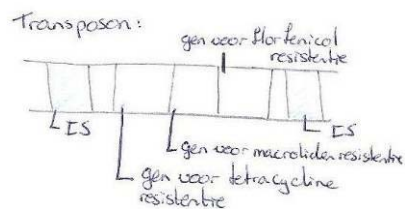 Transposon:
gen voor florfenicol
resistentie
IS
IS
gen voor macroliden resistentie
gen voor tetracycline
resistentie